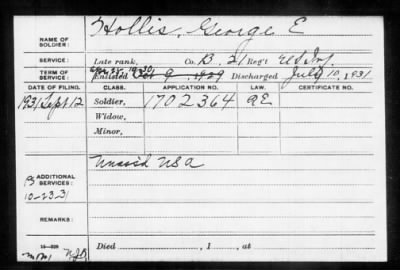 NAME OF SOLDIER: Hollis, George E
SERVICE: Late rank, Co. B, 21 Reg't U S Inf.
TERM OF SERVICE: Enlisted Oct 9, 1929 Discharged July 10, 1931
DATE OF FILING. CLASS. APPLICATION NO. LAW. CERTIFICATE NO.
1931 Sept 12 Soldier, 1702364 AE
Widow,
Minor,
Unass'd USA
B ADDITIONAL SERVICES:
10-23-31
REMARKS:
Died , 1 , at